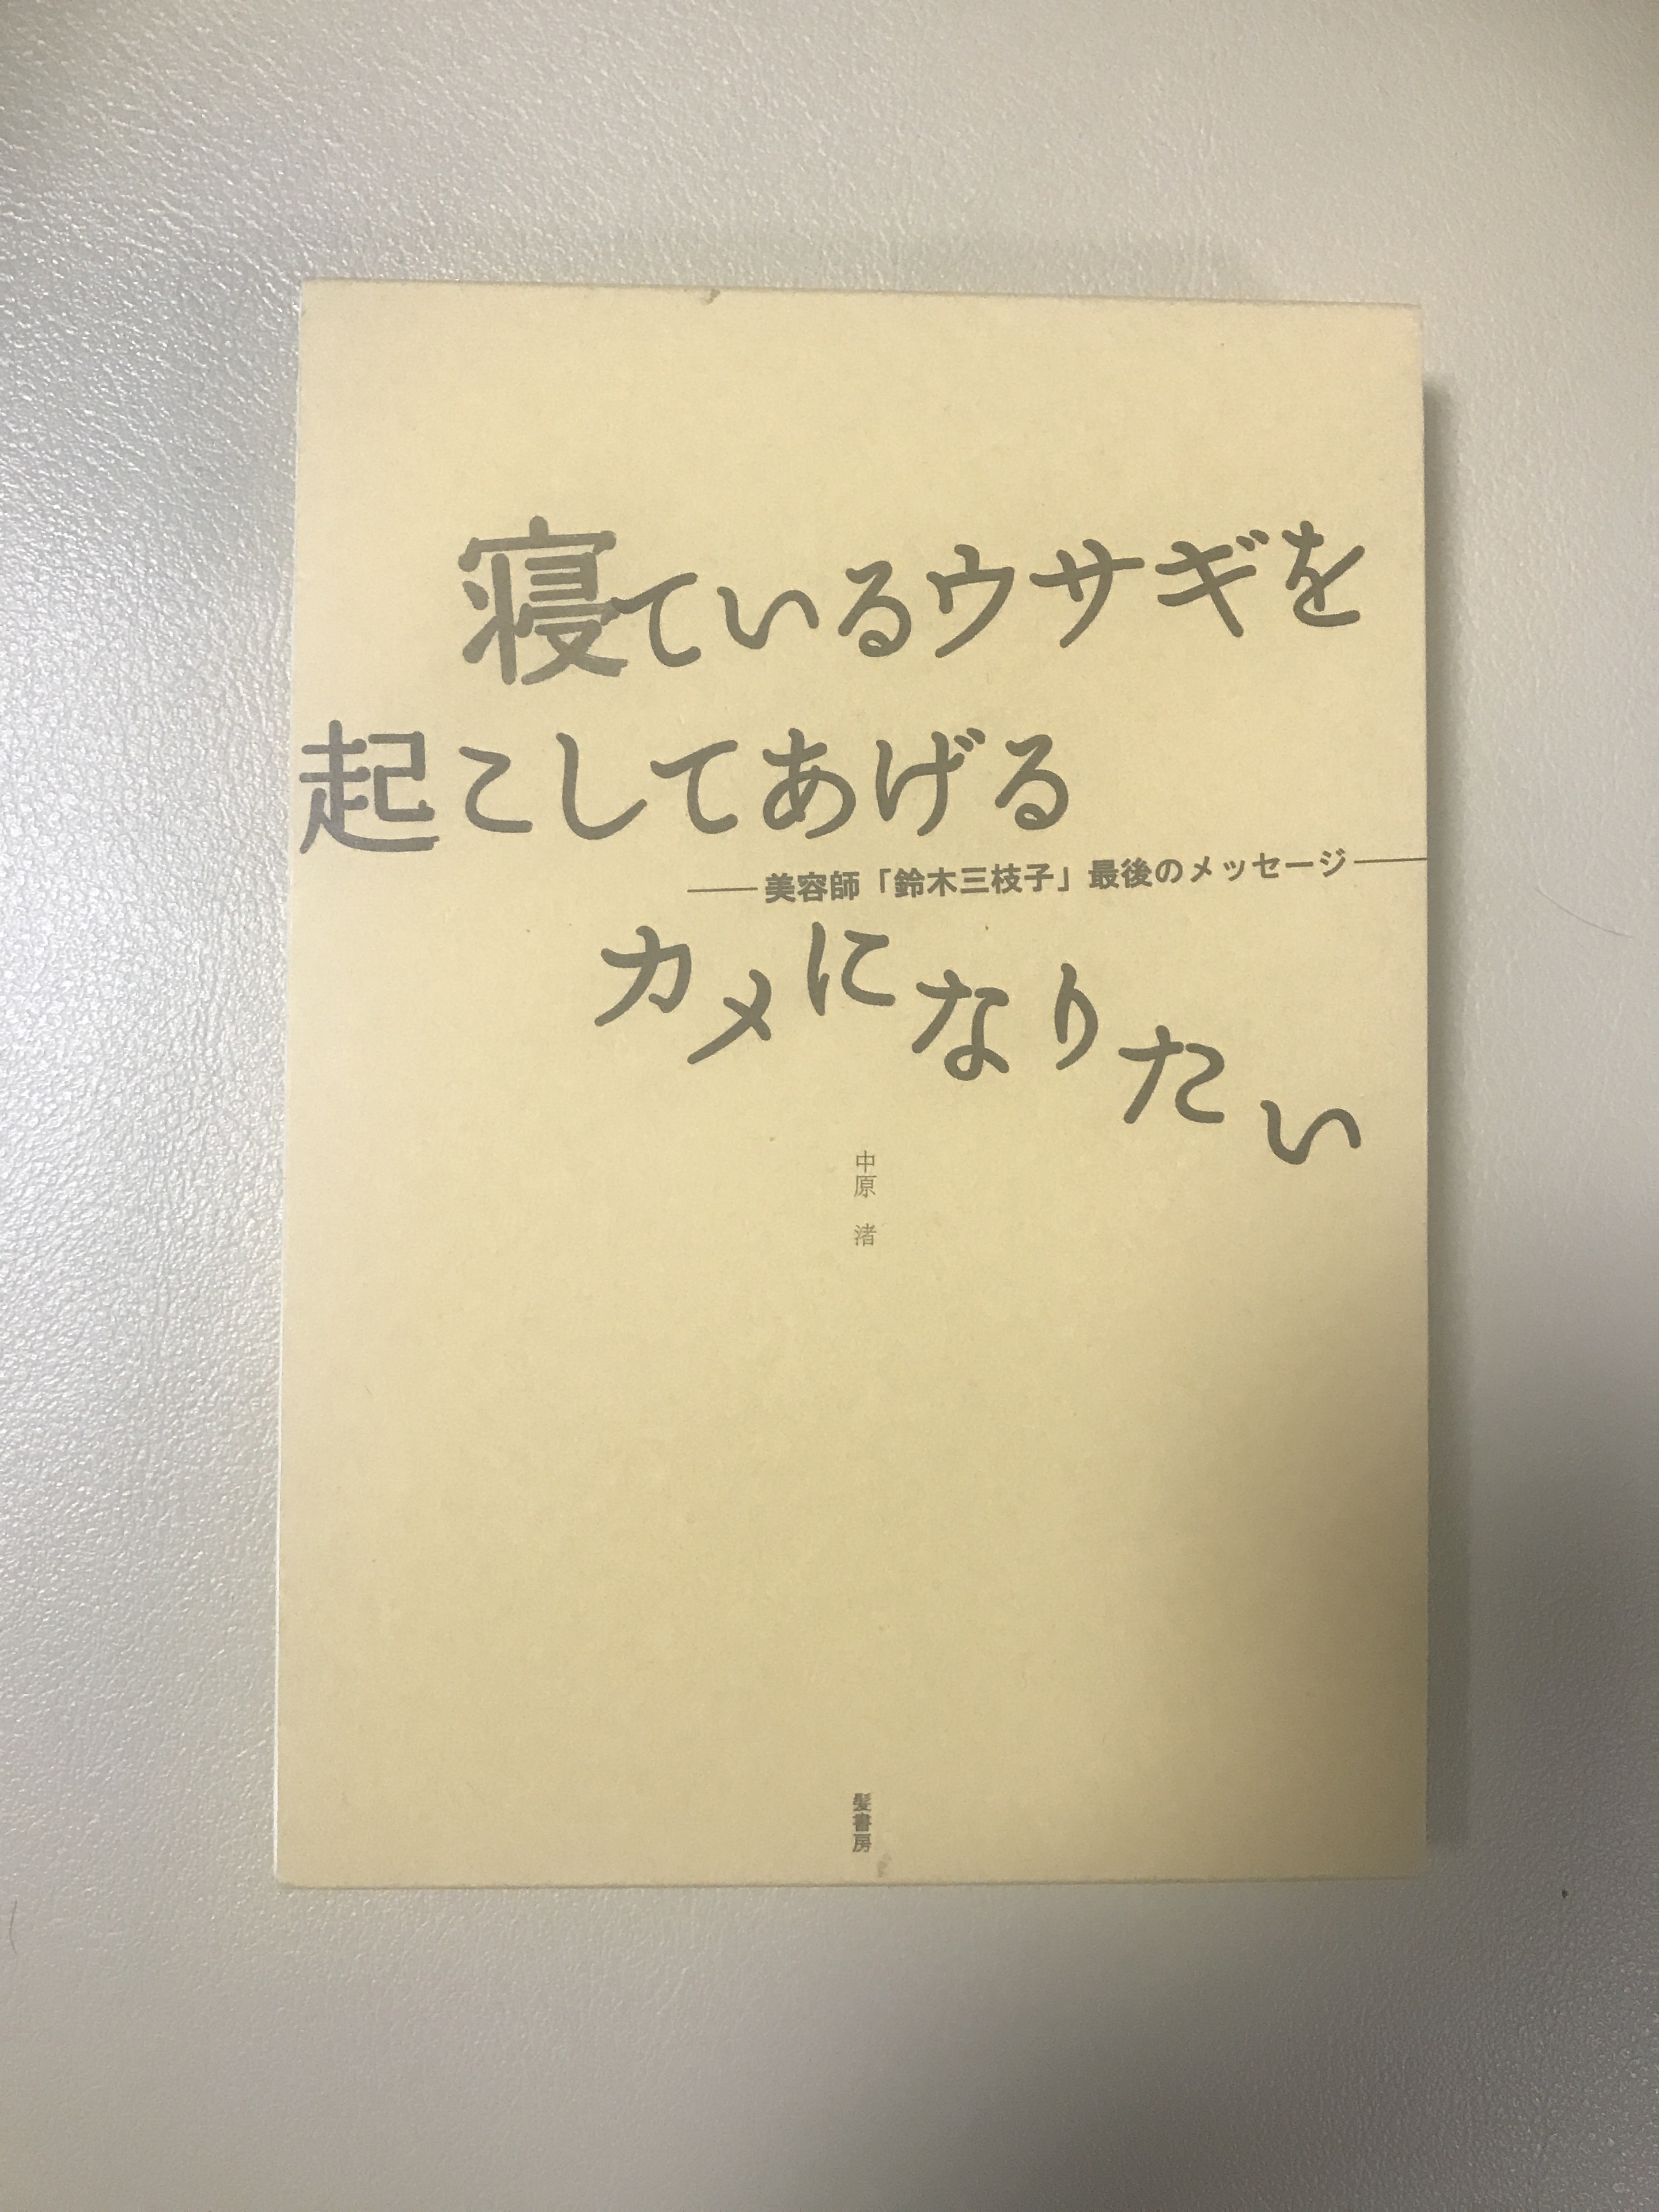 寝ているウサギを
起こしてあげる
――美容師「鈴木三枝子」最後のメッセージ――
カメになりたい
中原 渚
髪書房